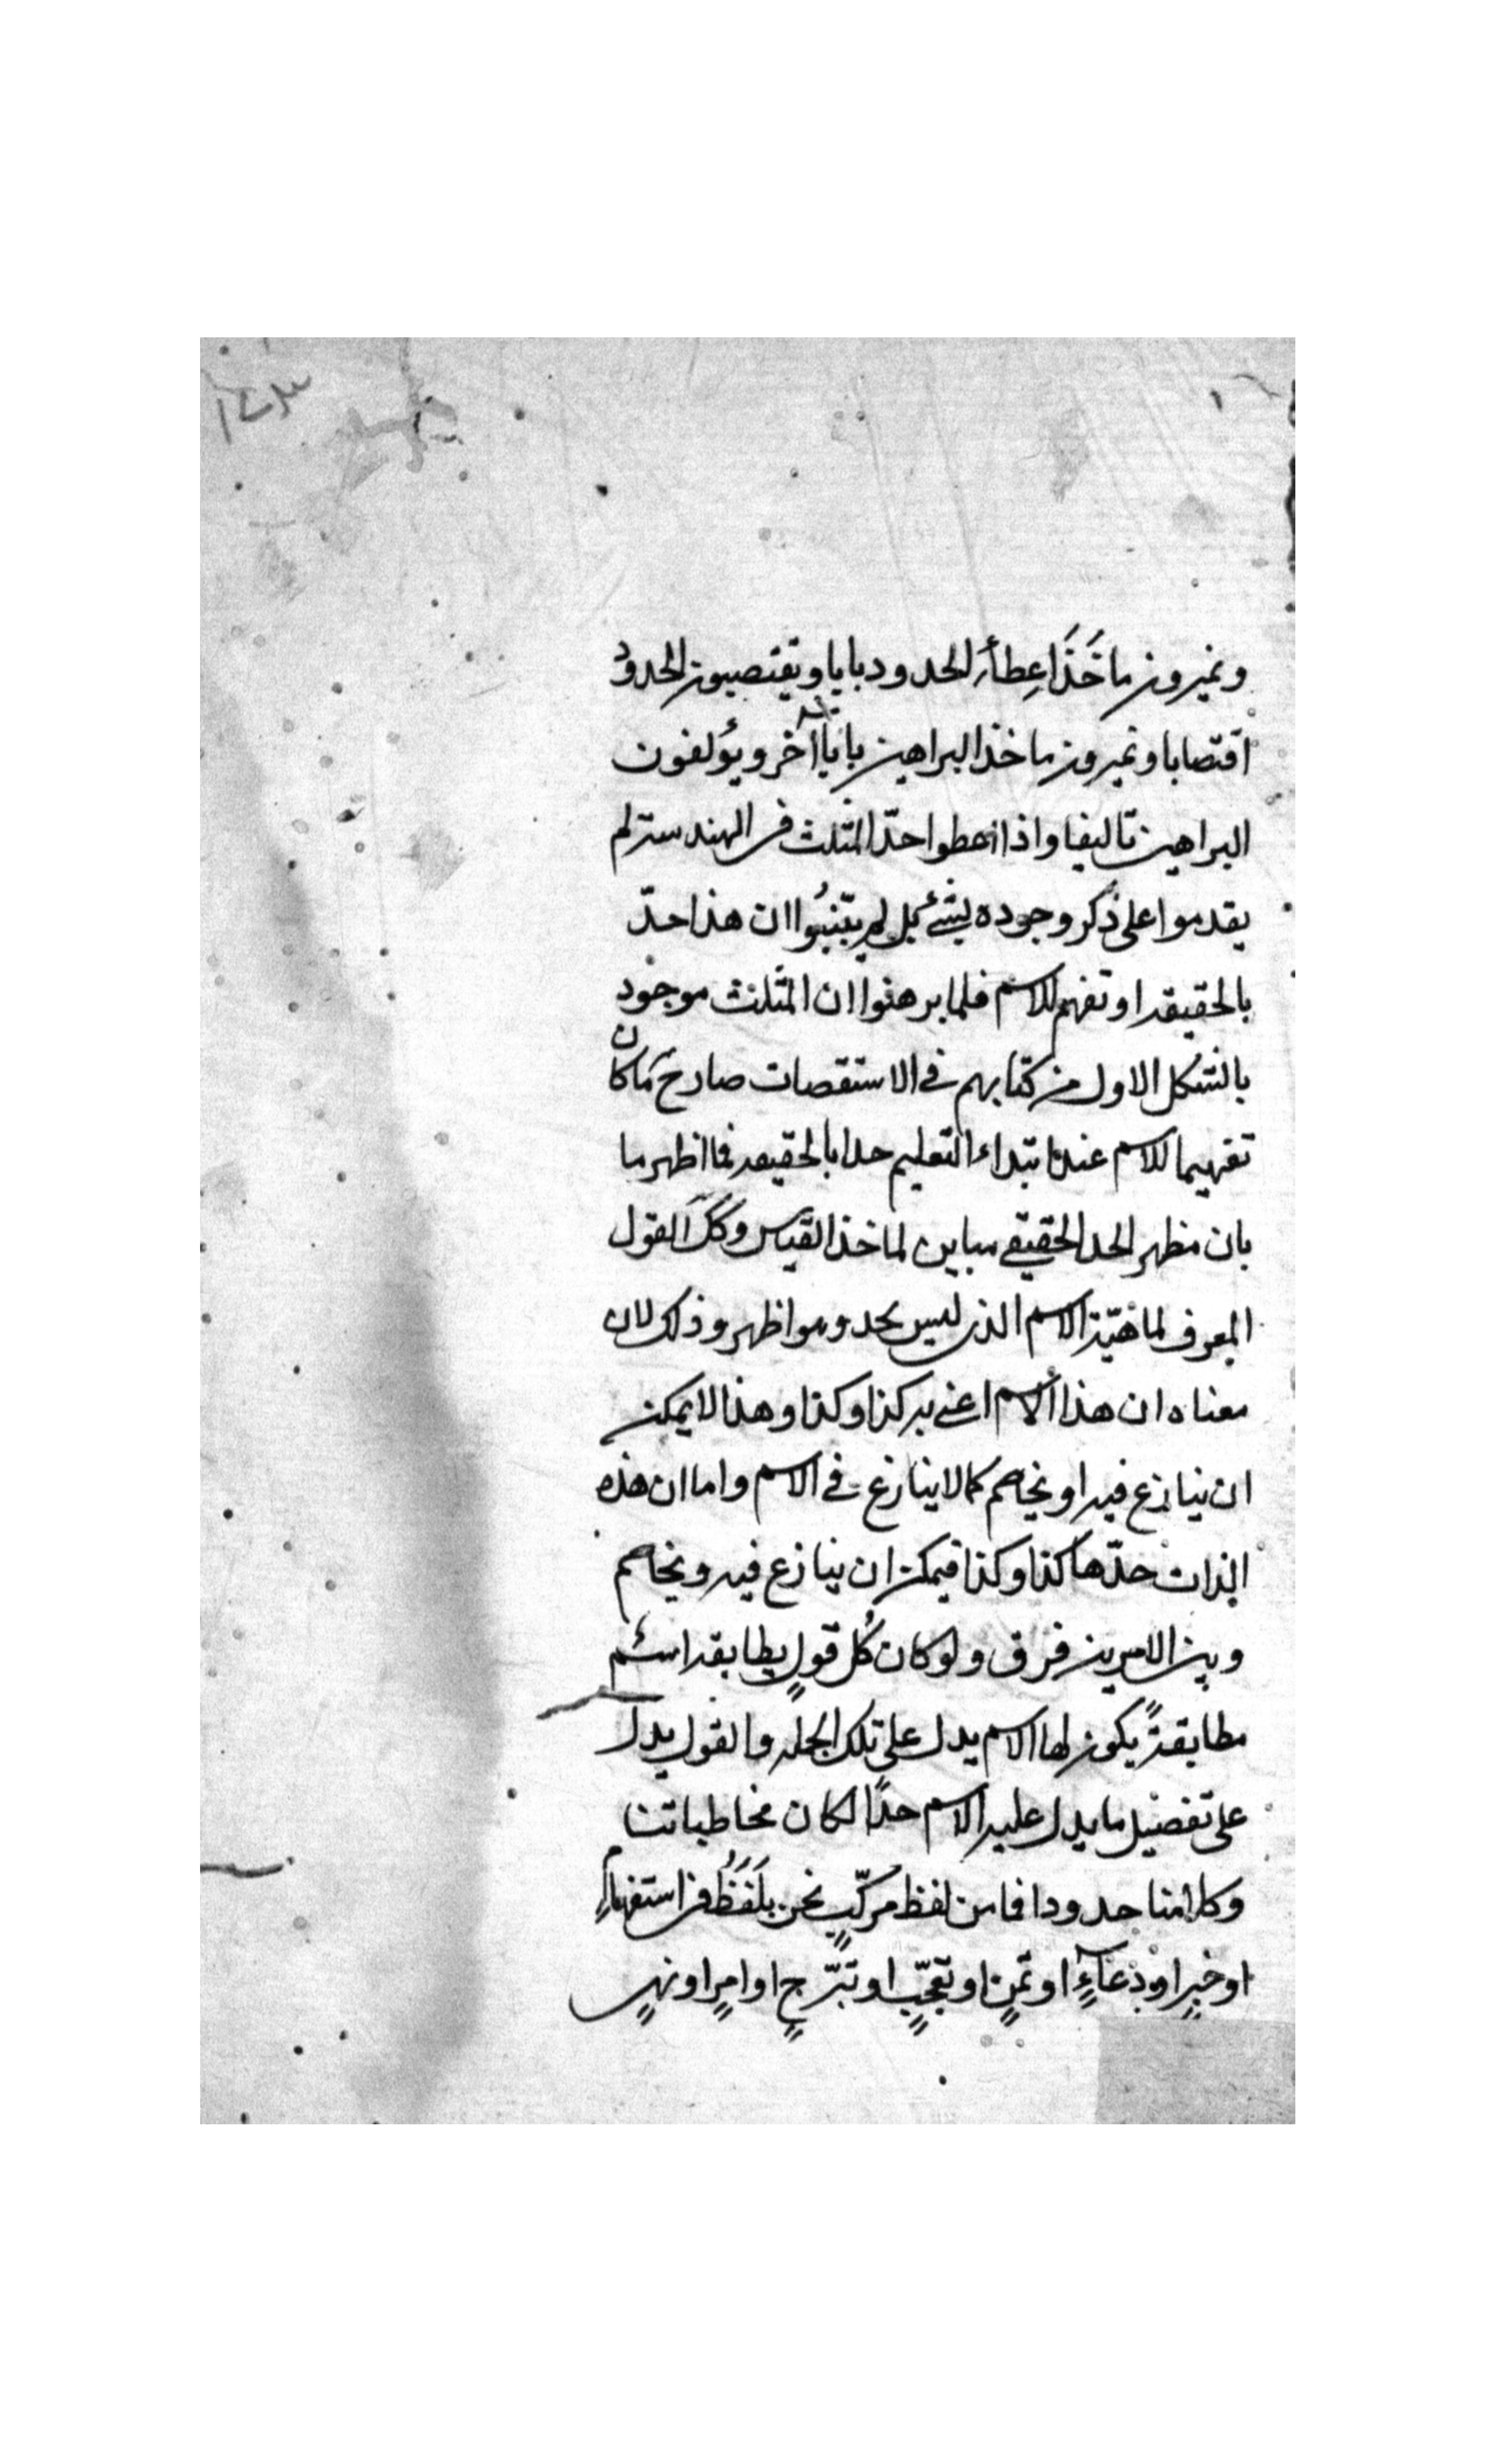 ١٤٣
ويميزون مأخَذَ اعِطاء الحدود بابا ويقتصبون الحدود
اقتصابا ويميزون ماخذ البراهين بابا آخر ويؤلفون
البراهين تاليفا واذا اعطوا حدّ المثلث فى الهندسة لم
يقدموا على ذكر وجوده بشئ بل لم يتبيُّوا ان هذا حدّ
بالحقيقة او تفهم للاسم فلما برهنوا ان المثلث موجود
بالشكل الاول من كتابهم في الاستقصات صار ح ما كان
تفهيما للاسم عند ابتداء التعليم حدا بالحقيقة فما اظهر ما
بان مظهر الحد الحقيقي مباين لماخذ القياس وكك القول
المعرف لماهيّة الاسم الذى ليس بحد وهو اظهر وذلك لان
معناه ان هذا الاسم اعني به كذا وكذا وهذا لا يمكن
ان ينازع فيه او يخاصم كما لا ينازع في الاسم واما ان هذه
الذات حدّها كذا وكذا فيمكن ان ينازع فيه ويخاصم
وبين الامرين فرق ولو كان كُل قولٍ يطابقه اسم
مطابقةً يكون لها الاسم يدل على تلك الجملة والقول يدل
على تفصيل ما يدل عليه الاسم حدًا لكان مخاطباتنا
وكلامنا حدودا فما من لفظ مركّبٍ نحن بلَفَظُ فى استفهامٍ
او خبرٍ او دعآءٍ او تمنٍ او تعجّبٍ او ترّجٍ او امرٍ او نهىٍ